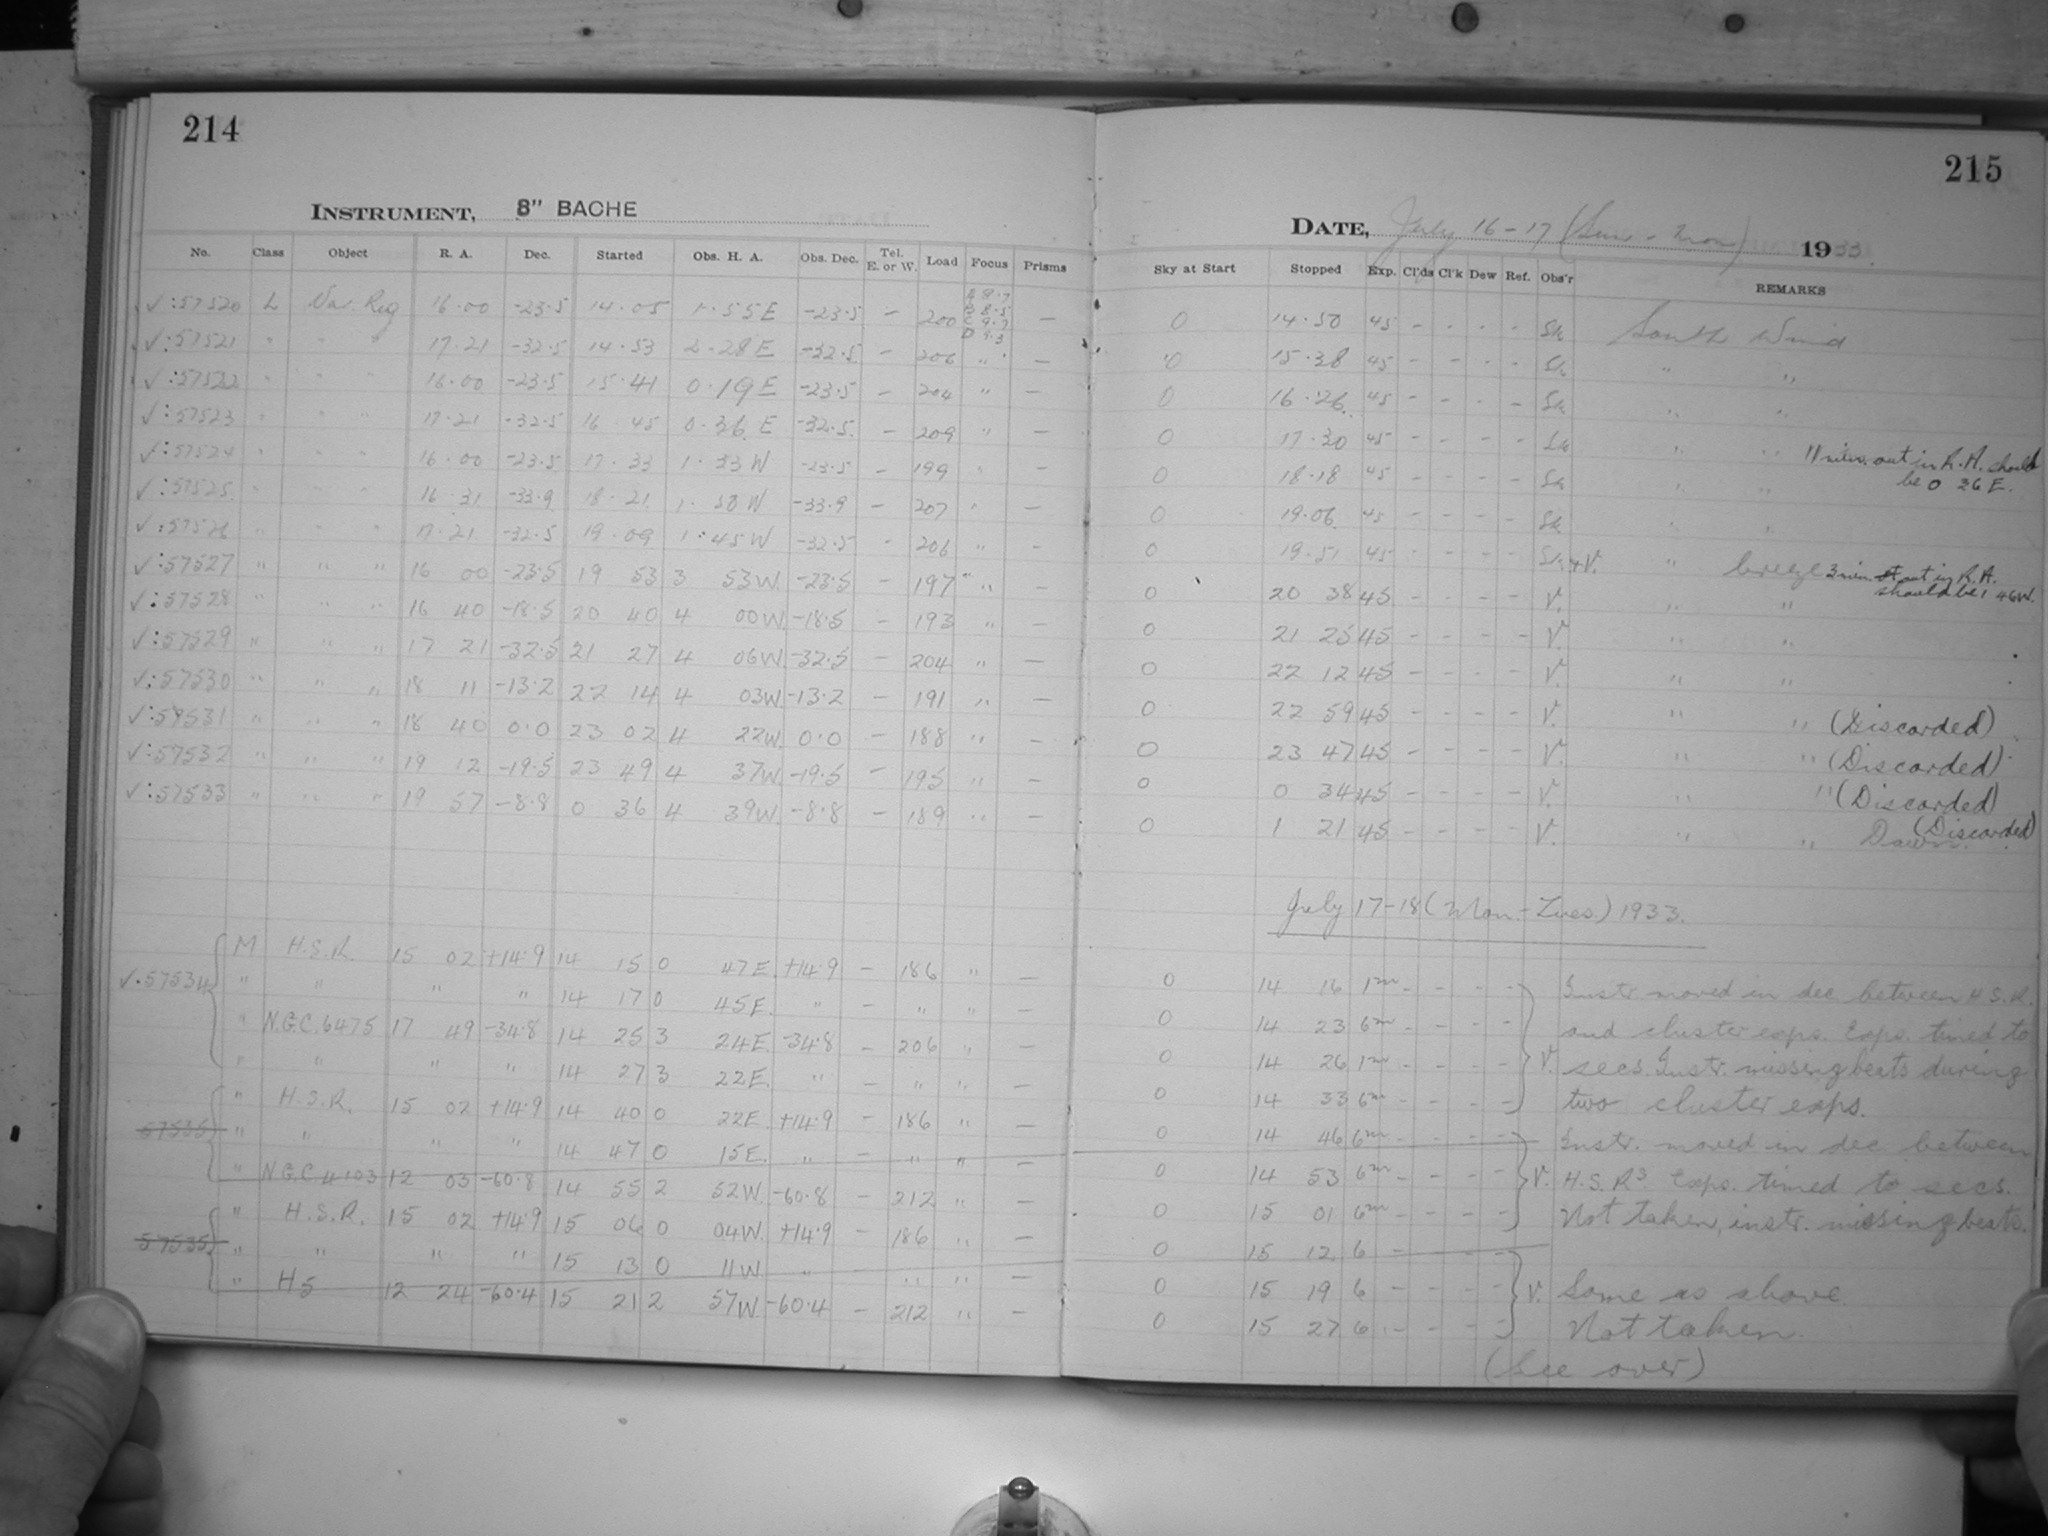 214
INSTRUMENT, 8" BACHE
No. Class Object R. A. Dec. Started Obs. H. A. Obs. Dec. Tel. E. or W. Load Focus Prisms
√:57520 L Var. Reg 16·00 -23·5 14·05 1·55E -23·5 - 200 A 9·7 B 8·5 C 9·7 D 9·3 -
√:57521 " " " 17·21 -32·5 14·53 2·28E -32·5 - 206 " -
√:57522 " " " 16·00 -23·5 15·41 0·19E -23·5 - 204 " -
√:57523 " " " 17·21 -32·5 16 45 0·36 E -32·5 - 209 " -
√:57524 " " " 16·00 -23·5 17·33 1·33W -23·5 - 199 " -
√:57525 " " " 16·31 -33·9 18·21 1·50W -33·9 - 207 " -
√:57526 " " " 17·21 -32·5 19·09 1·45W -32·5 - 206 " -
√:57527 " " " 16 00 -23·5 19 53 3 53W. -23·5 - 197 " -
√:57528 " " " 16 40 -18·5 20 40 4 00W -18·5 - 193 " -
√:57529 " " " 17 21 -32·5 21 27 4 06W. -32·5 - 204 " -
√:57530 " " " 18 11 -13·2 22 14 4 03W -13·2 - 191 " -
√:57531 " " " 18 40 0·0 23 02 4 22W. 0·0 - 188 " -
√:57532 " " " 19 12 -19·5 23 49 4 37W -19·5 - 195 " -
√:57533 " " " 19 57 -8·8 0 36 4 39W. -8·8 - 189 " -
M H.S.R. 15 02 +14·9 14 15 0 47E. +14·9 - 186 " -
√.57534 " " " " 14 17 0 45E. " - " " -
" N.G.C. 6475 17 49 -34·8 14 25 3 24E. -34·8 - 206 " -
" " " " 14 27 3 22E. " - " " -
" H.S.R. 15 02 +14·9 14 40 0 22E. +14·9 - 186 " -
57535 " " " " 14 47 0 15E. " - " " -
" N.G.C. 4103 12 03 -60·8 14 55 2 52W. -60·8 - 212 " -
" H.S.R. 15 02 +14·9 15 06 0 04W. +14·9 - 186 " -
57535 " " " " 15 13 0 11W. " - " " -
" H5 12 24 -60·4 15 21 2 57W -60·4 - 212 " -
215
DATE, July 16-17 (Sun - Mon) 1933.
Sky at Start Stopped Exp. Cl'ds Cl'k Dew Ref. Obs'r REMARKS
0 14·50 45 - - - - Sk South Wind
0 15·38 45 - - - - Sk " "
0 16·26. 45 - - - - Sk " "
0 17·30 45 - - - - Sk " " 11 min. out in R.A. should be 0 26 E.
0 18·18 45 - - - - Sk " "
0 19·06. 45 - - - - Sk " "
0 19·51 45 - - - - Sk + V. " breeze 3 min. out in R.A. should be 1 46W.
0 20 38 45 - - - - V. " "
0 21 25 45 - - - - V. " "
0 22 12 45 - - - - V. " "
0 22 59 45 - - - - V. " " (Discarded)
0 23 47 45 - - - - V. " " (Discarded)
0 0 34 45 - - - - V. " " (Discarded)
0 1 21 45 - - - - V. " " Dawn. (Discarded)
July 17-18 (Mon.-Tues.) 1933.
0 14 16 1m - - - - Instr. moved in dec between H.S.R.
0 14 23 6m - - - - and cluster exps. Exps. timed to
0 14 26 1m - - - - V. secs. Instr. missing beats during
0 14 33 6m - - - - two cluster exps.
0 14 46 6m - - - - Instr. moved in dec between
0 14 53 6m - - - - V. H.S.Rs. Exps. timed to secs.
0 15 01 6m - - - - Not taken, instr. missing beats.
0 15 12 6 - - - -
0 15 19 6 - - - - V. Same as above
0 15 27 6 - - - - Not taken.
(See over)